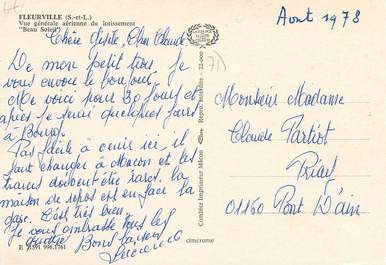 FLEURVILLE (S.-et-L.)
Vue générale aérienne du lotissement
"Beau Soleil"
Août 1978
Chère Gisèle, Cher Claude
De mon petit trou je
vous envoie le bonjour.
Me voici pour 30 jours et
après je serai quelques jours
à Bourg.
Pas facile à venir ici, il
faut changer à Macon et les
trains doivent être rares. La
maison de repos est en face la
gare. C'est très bien.
Je vous embrasse tous les
quatre
Bons baisers
Lucienne
Combier Imprimeur Mâcon
Monsieur Madame
Claude Partiot
Priay
01160 Pont d'Ain
E
cimcrome